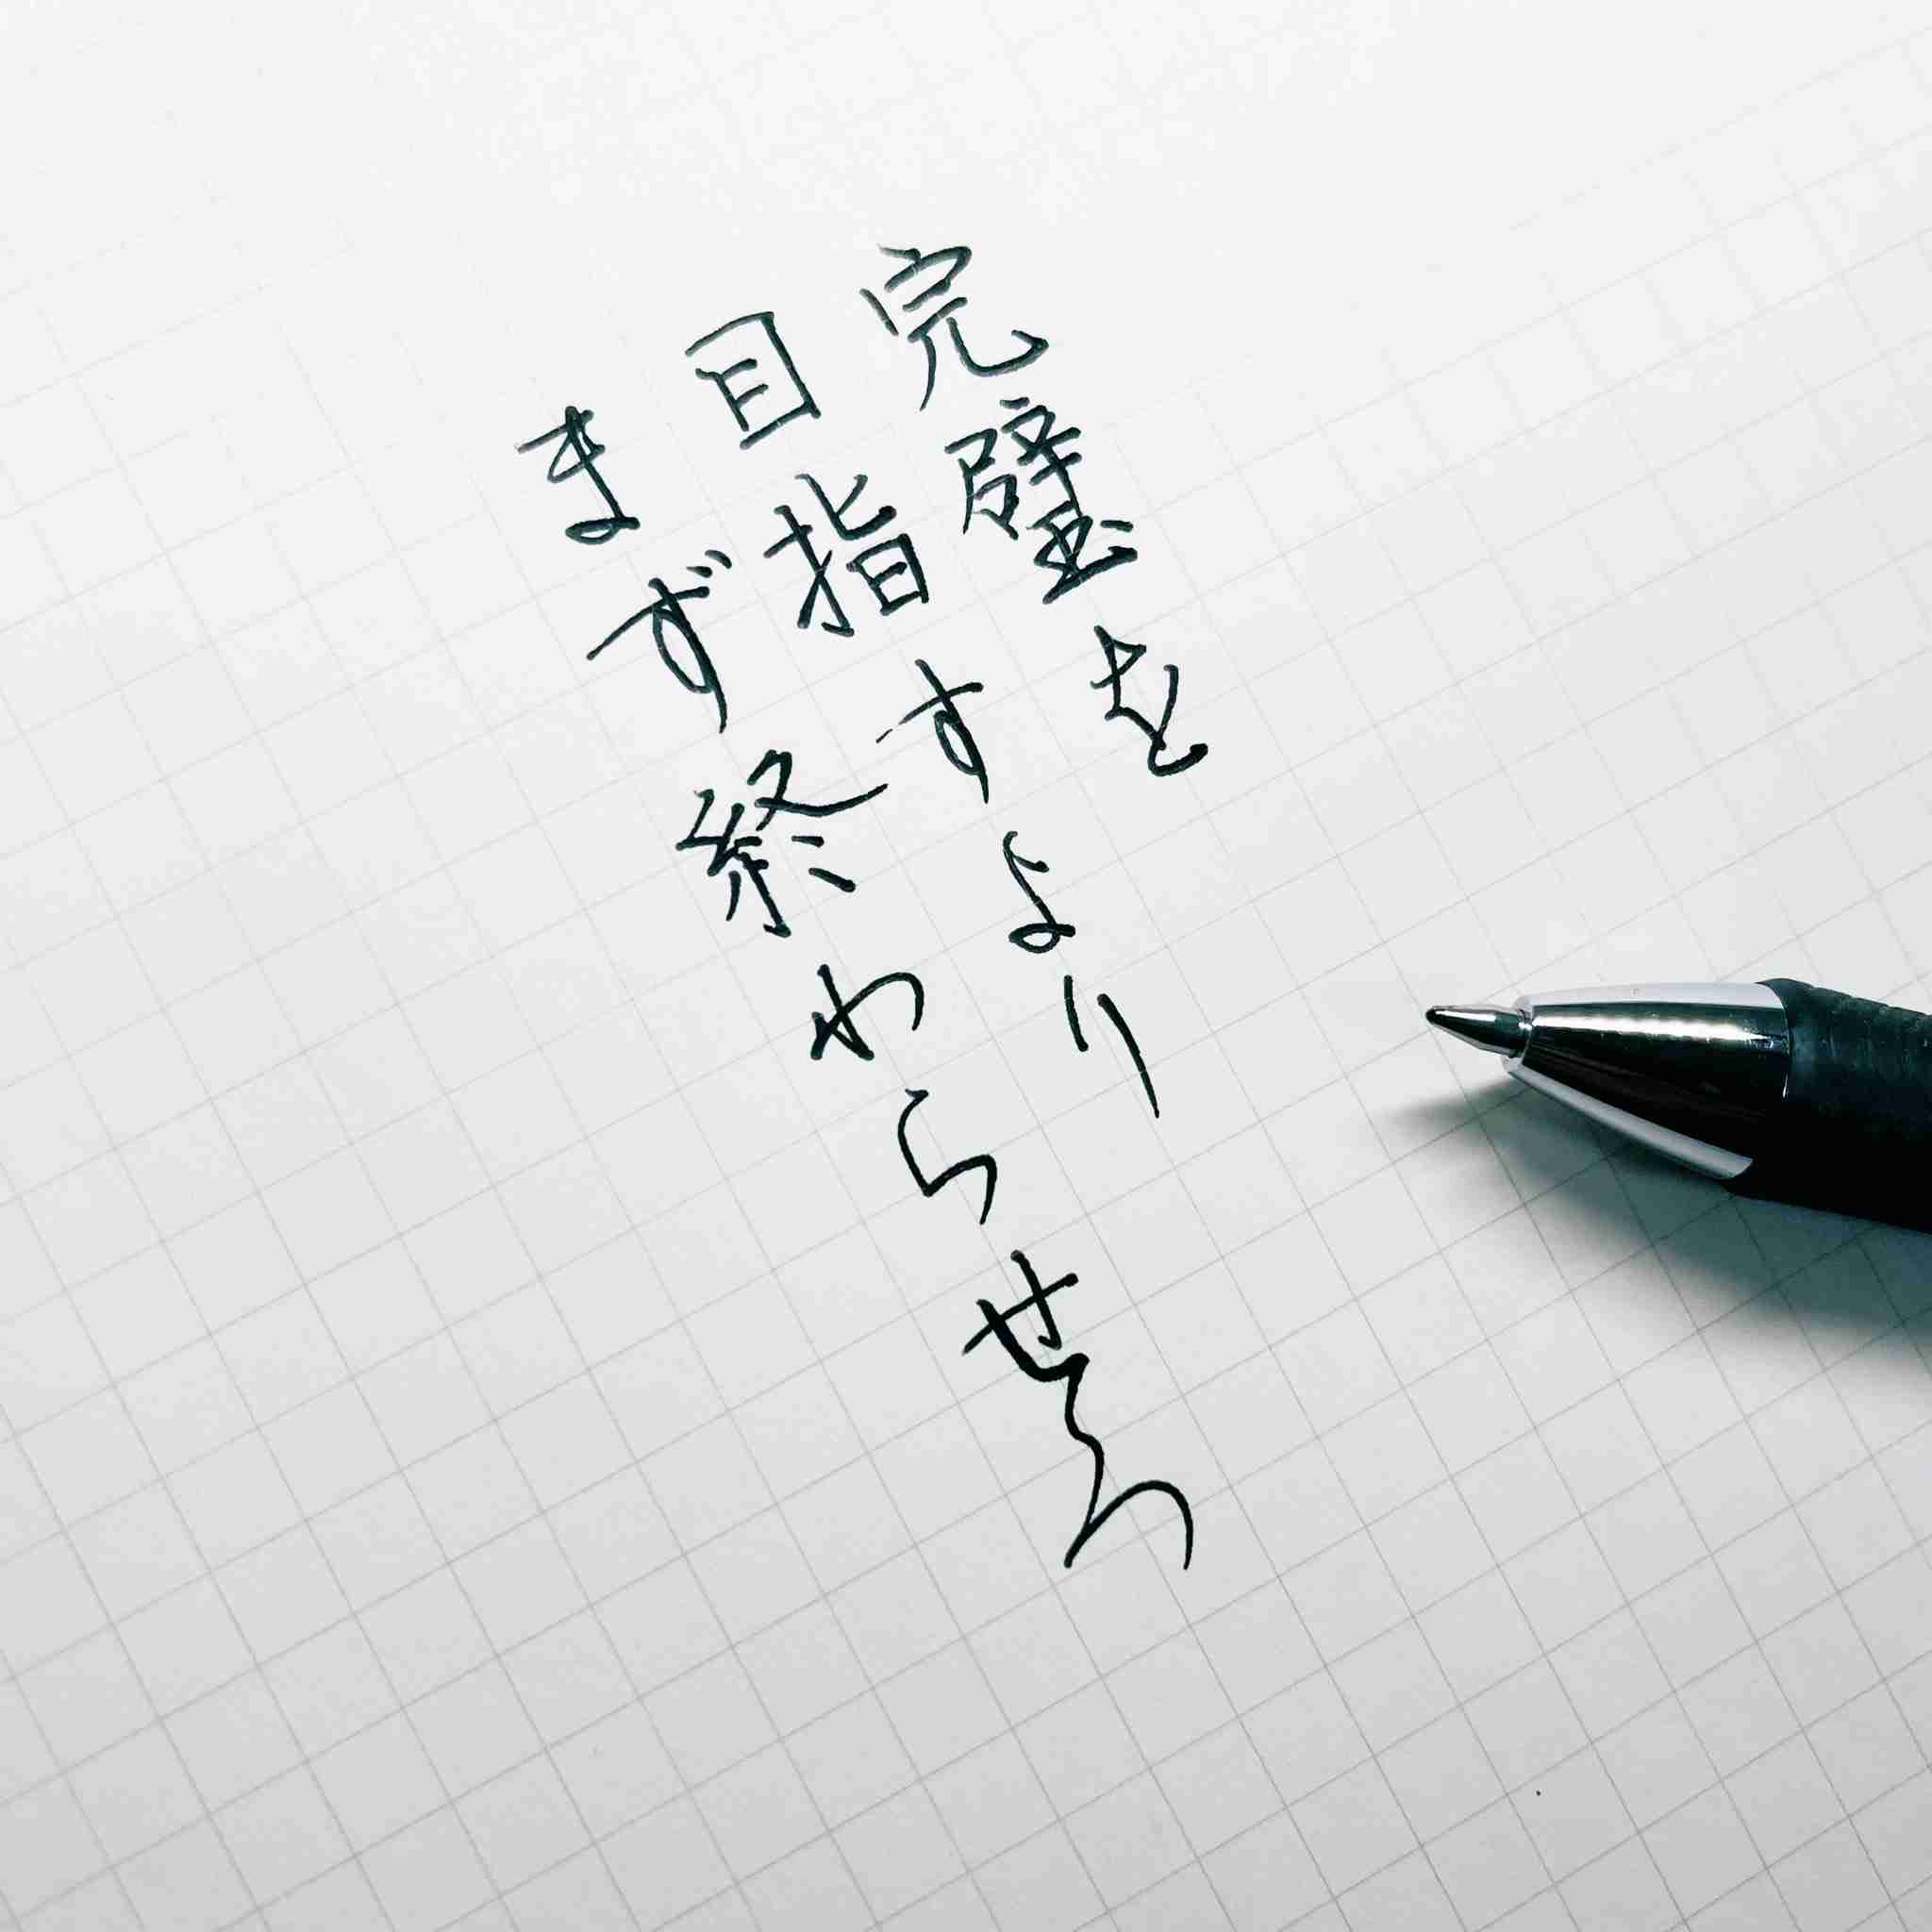 完璧を
目指すより
まず終わらせろ